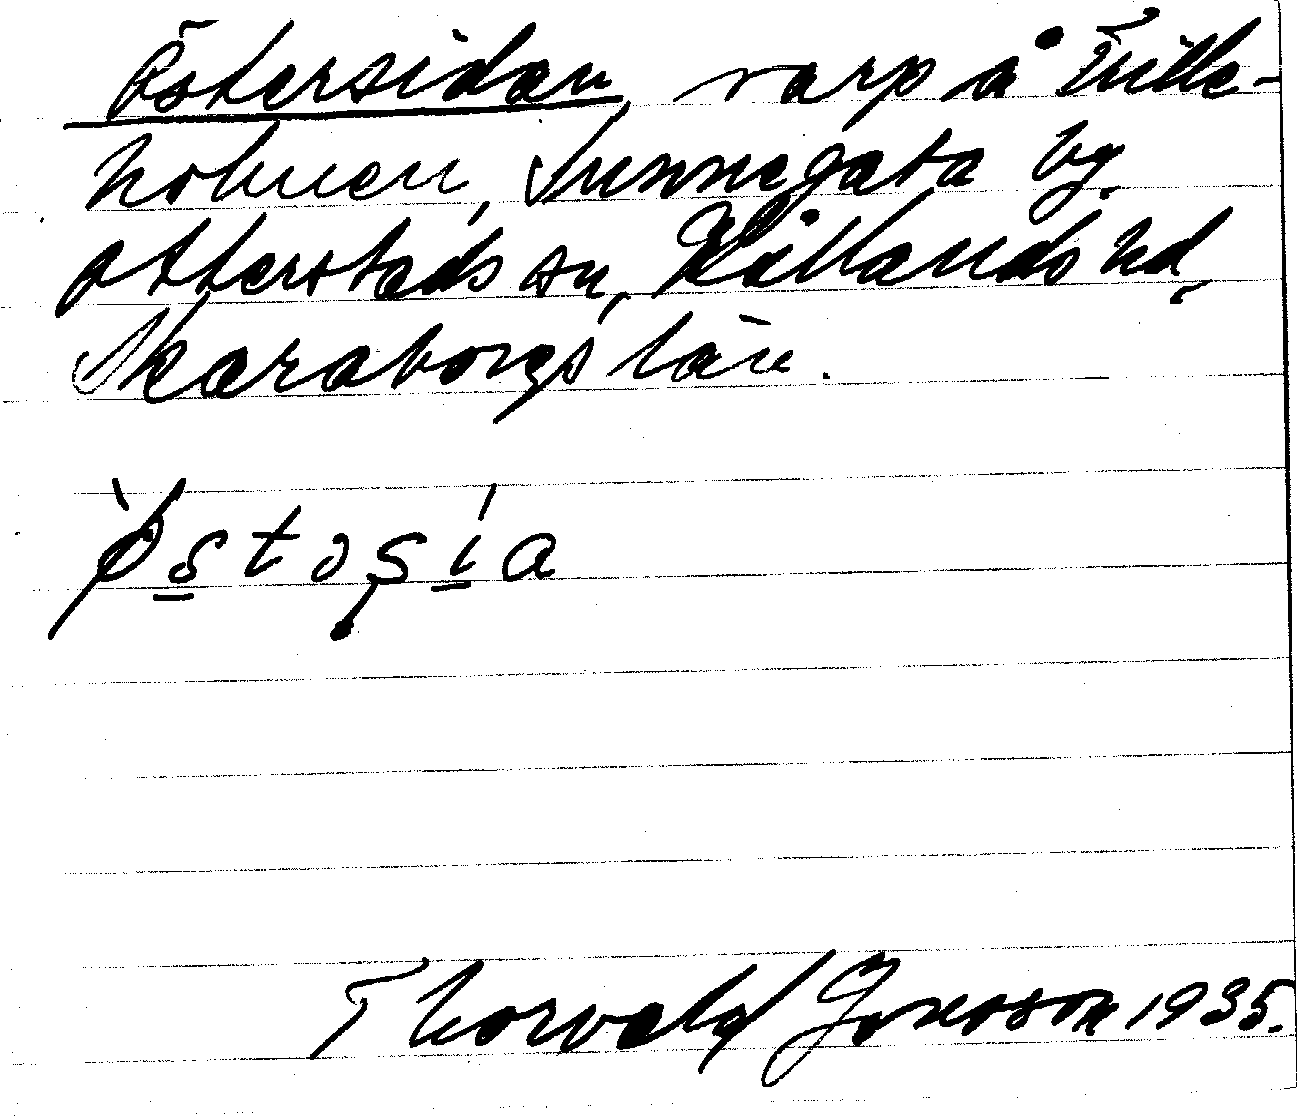 Östersidan, varp å Fille-
holmen, Sunnegata by.
Otterstads sn, Kållands hd,
Skaraborgs län.
Östəsia
Thorvald Jonosson 1935.